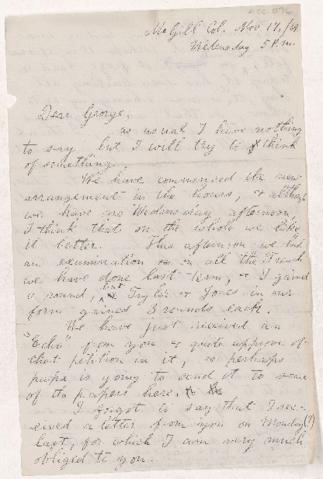 McGill Col. Nov 17./
Wednesday 5 P.m.
Dear George,
as usual I have nothing
to say but I will try to think
of something.
We have commenced the new
arrangement in the hours, &
we have no Wednesday afternoon,
I think that on the whole we like
it better. This afternoon we had
an examination on all the French
we have done last term, & I gained
a round, but Taylor & Jones in our
form gained 3 rounds each.
We have just received an
"Echo" from you & quite approve of
that petition in it, & perhaps
papa is going to send it to some
of the papers here.
I forgot to say that I rec-
eived a letter from you on Monday(?)
last, for which I am very much
obliged to you.